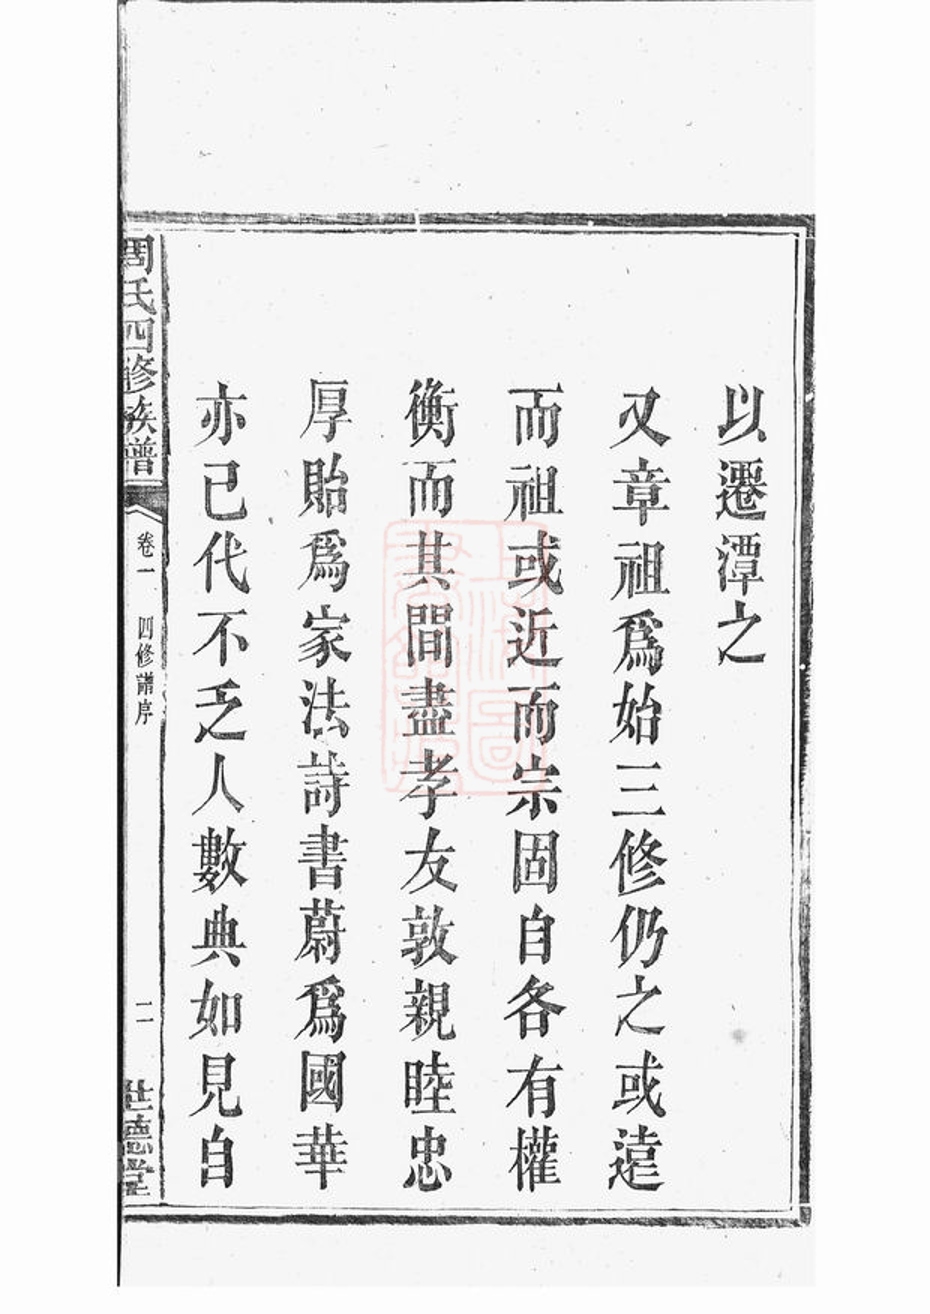 以遷潭之
又章祖爲始三修仍之或遠
而祖或近而宗固自各有權
衡而其間盡孝友敦親睦忠
厚貽爲家法詩書蔚爲國華
亦已代不乏人數典如見自
周氏四修族譜
卷一
四修譜序
二
世德堂
上海圖書館藏